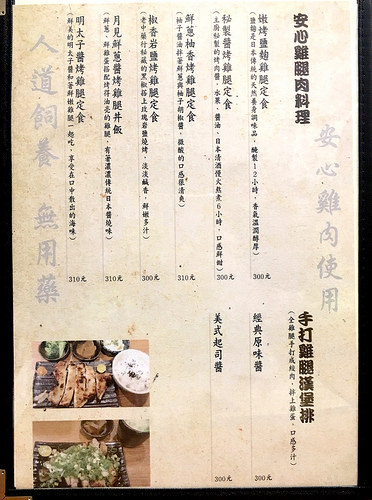 安心雞腿肉料理
嫩烤鹽麴雞腿定食
(鹽麴是日本傳統的天然養身調味品，醃製12小時，香氣溫潤醇厚)
300元
秘製醬烤雞腿定食
(主廚秘製的烤肉醬，水果、醬油、日本清酒慢火熬煮6小時，口感鮮甜)
300元
鮮蔥柚香烤雞腿定食
(柚子醬油拌著鮮蔥與柚子胡椒醬，微酸的口感很清爽)
310元
椒香岩鹽烤雞腿定食
(老中藥行秘藏的黑椒搭上玫瑰岩鹽燒烤，淡淡鹹香，鮮嫩多汁)
300元
月見鮮蔥醬烤雞腿丼飯
(鮮蔥、鮮雞蛋搭配烤得油亮的雞腿，有著濃濃傳統日本醬燒味)
310元
明太子醬烤雞腿定食
(鮮美的明太子醬和著鮮嫩雞腿一起吃，享受在口中散出的海味)
310元
手打雞腿漢堡排
(全雞腿手打成絞肉，拌上雞蛋，口感多汁)
經典原味醬
300元
美式起司醬
300元
安心雞肉使用
人道飼養 無用藥